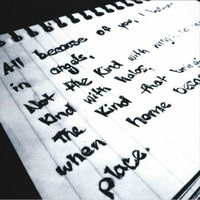 All because of you, I believe
in angels,
Not the kind with wings,
Kind with halos,
The kind that bring
when home
place.